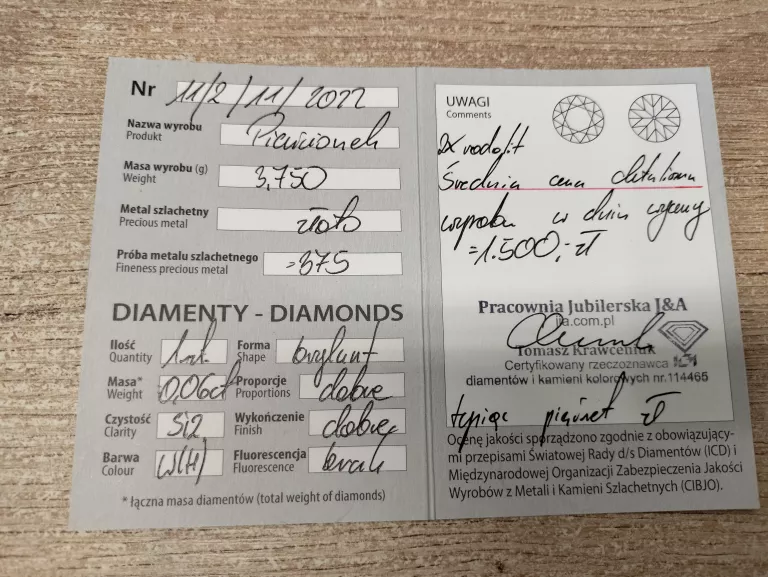 Nr 11/2/11/2022
Nazwa wyrobu Pierścionek
Produkt
Masa wyrobu (g) 3,750
Weight
Metal szlachetny złoto
Precious metal
Próba metalu szlachetnego =375
Fineness precious metal
DIAMENTY - DIAMONDS
Ilość Quantity 1szt. Forma Shape brylant
Masa* Weight 0,06ct Proporcje Proportions dobre
Czystość Clarity Si2 Wykończenie Finish dobre
Barwa Colour W(H) Fluorescencja Fluorescence brak
* łączna masa diamentów (total weight of diamonds)
UWAGI
Comments
2x rodolit
Średnia cena detaliczna
wyrobu w dniu wyceny
=1.500,- zł
Pracownia Jubilerska J&A
Tomasz Krawceniuk
Certyfikowany rzeczoznawca
diamentów i kamieni kolorowych nr.114465
tysiąc pięćset zł
Ocenę jakości sporządzono zgodnie z obowiązujący-
mi przepisami Światowej Rady d/s Diamentów (ICD) i
Międzynarodowej Organizacji Zabezpieczenia Jakości
Wyrobów z Metali i Kamieni Szlachetnych (CIBJO).